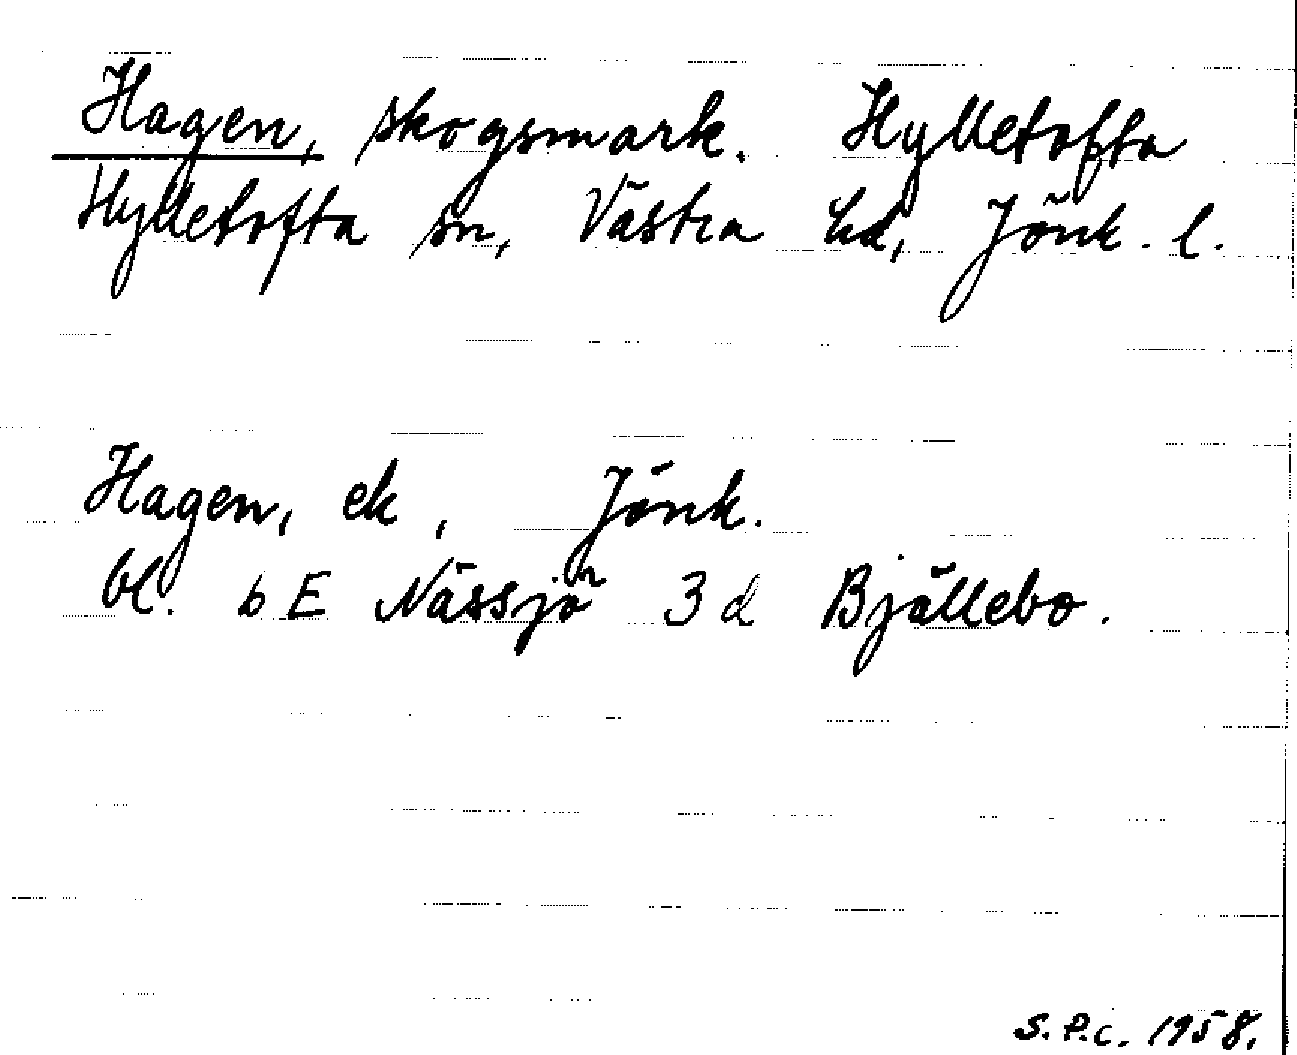 Hagen, skogsmark. Hylletofta
Hylletofta sn, Västra hd, Jönk. l.
Hagen, ek, Jönk.
bl. 6 E Nässjö 3 d Bjällebo.
S.P.C. 1958.